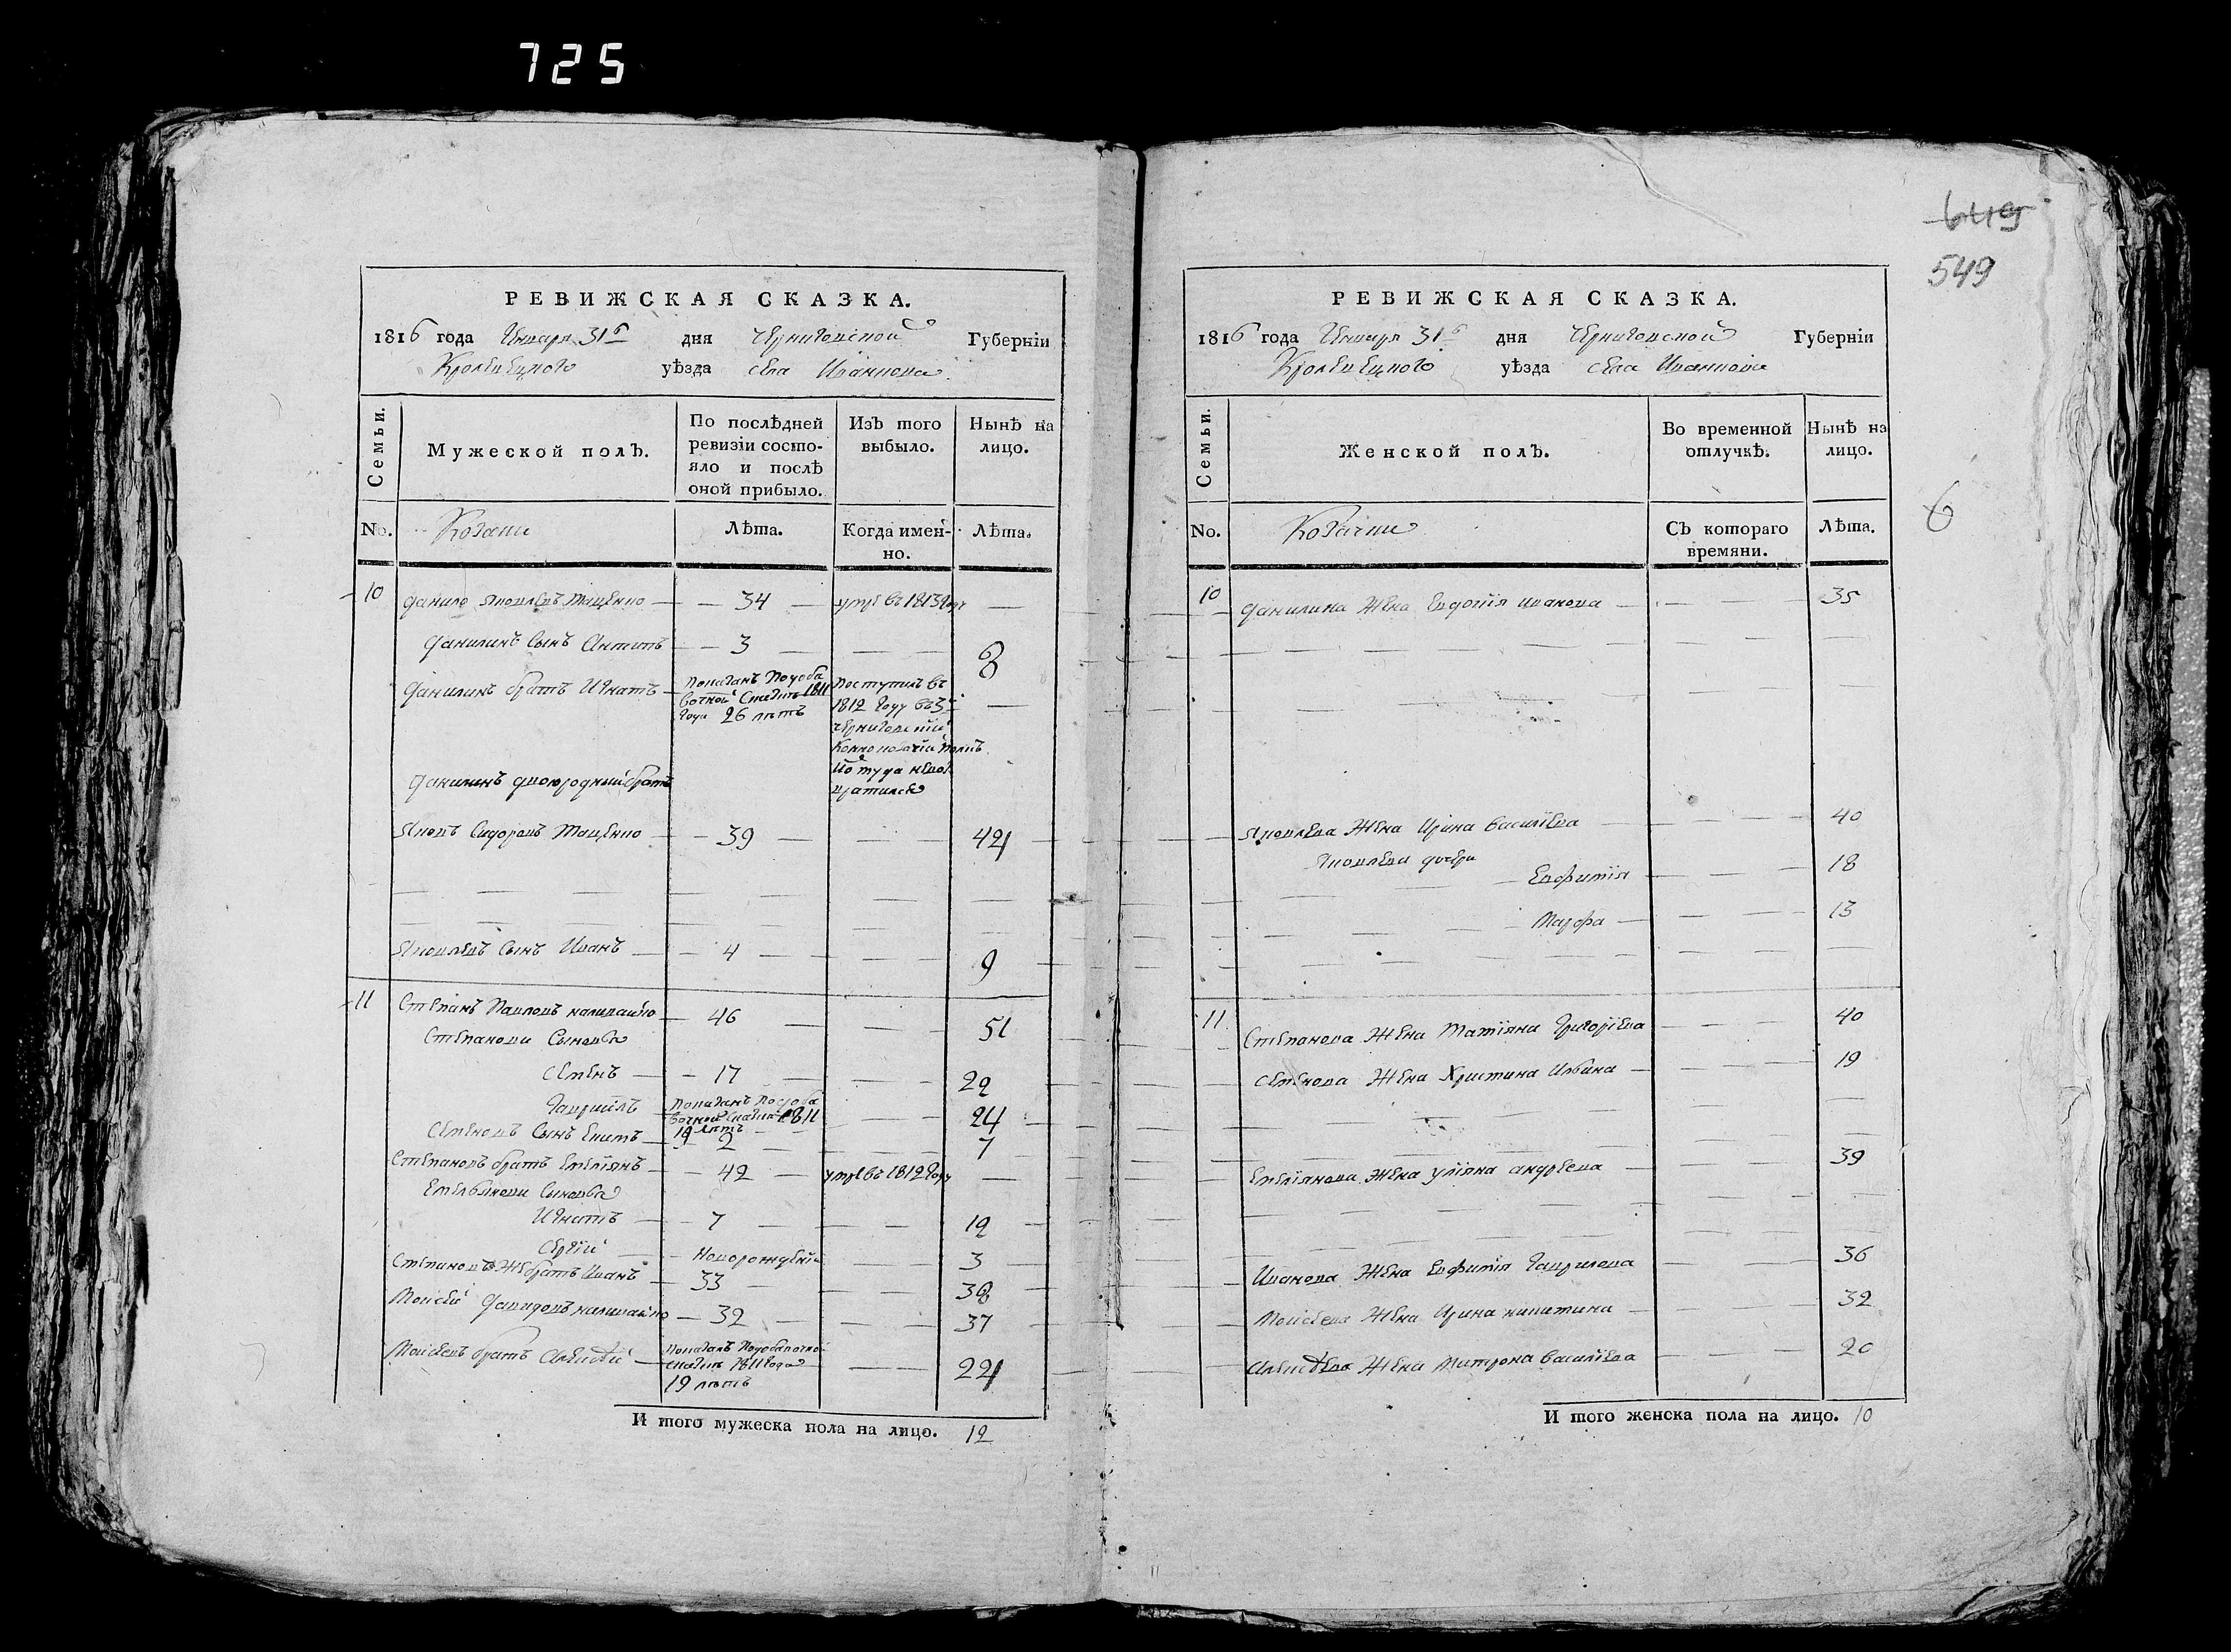 725
649
549
6
РЕВИЖСКАЯ СКАЗКА.
1816 года Генваря 31го дня Черниговской Губерніи
Кролевецкого уѣзда села Иванкова
Семьи.
Мужеской полъ.
По послѣдней ревизіи состо-
яло и послѣ
оной прибыло.
Изъ того выбыло.
Нынѣ на лицо.
No. Козаки
Лѣта.
Когда имен-
но.
Лѣта.
10 Данило Яковлевъ Тащенко 34 умре въ 1813 году
Данилинъ Сынъ Антипъ 3 8
Данилинъ братъ Игнатъ
Показанъ Подоба
вочной Сказкѣ 1811
года 26 лѣтъ
Поступилъ въ
1812 году въ 3й
Черниговскій
Конно козачій полкъ
и оттуда невоз
вратился
Данилинъ двоюродный братъ
Яковъ Сидоровъ Тащенко 39 44
Яковлевъ Сынъ Иванъ 4 9
11 Степанъ Павловъ 46 51
Степанови Сыновья
Семенъ 17 22
Гавриилъ
Показанъ Подоба
вочной Сказкѣ 1811
19 лѣтъ
24
Семеновъ Сынъ 2 7
Степановъ братъ Емеліянъ 42 умре въ 1812 году
Емельянови Сыновья
Игнатъ 7 12
Сергій Новорожденій 3
Степановъ же братъ Иванъ 33 38
Моисей Давидовъ 32 37
Моисеевъ братъ Алексѣй
Показанъ Подобавочной
сказкѣ 1811 года
19 лѣтъ
24
И того мужеска пола на лицо. 12
РЕВИЖСКАЯ СКАЗКА.
1816 года Генваря 31го дня Черниговской Губерніи
Кролевецкого уѣзда села Иванкова
Семьи.
Женской полъ.
Во временной
отлучкѣ.
Нынѣ на
лицо.
No. Козачки
Съ котораго
времяни.
Лѣта.
10 Данилина Жена Евдокія Иванова 35
Яковлева Жена Ирина Василіева 40
Яковлеви дочери
Евфимія 18
Марфа 13
11 Степанова Жена Татіяна Григоріева 40
Семенова Жена Христина Ильина 19
Емеліянова Жена Уліяна Андреева 39
Иванова Жена Евфимія Гаврилова 36
Моисеева Жена Ирина Никитина 32
Алексѣева Жена Матрона Василіева 20
И того женска пола на лицо. 10